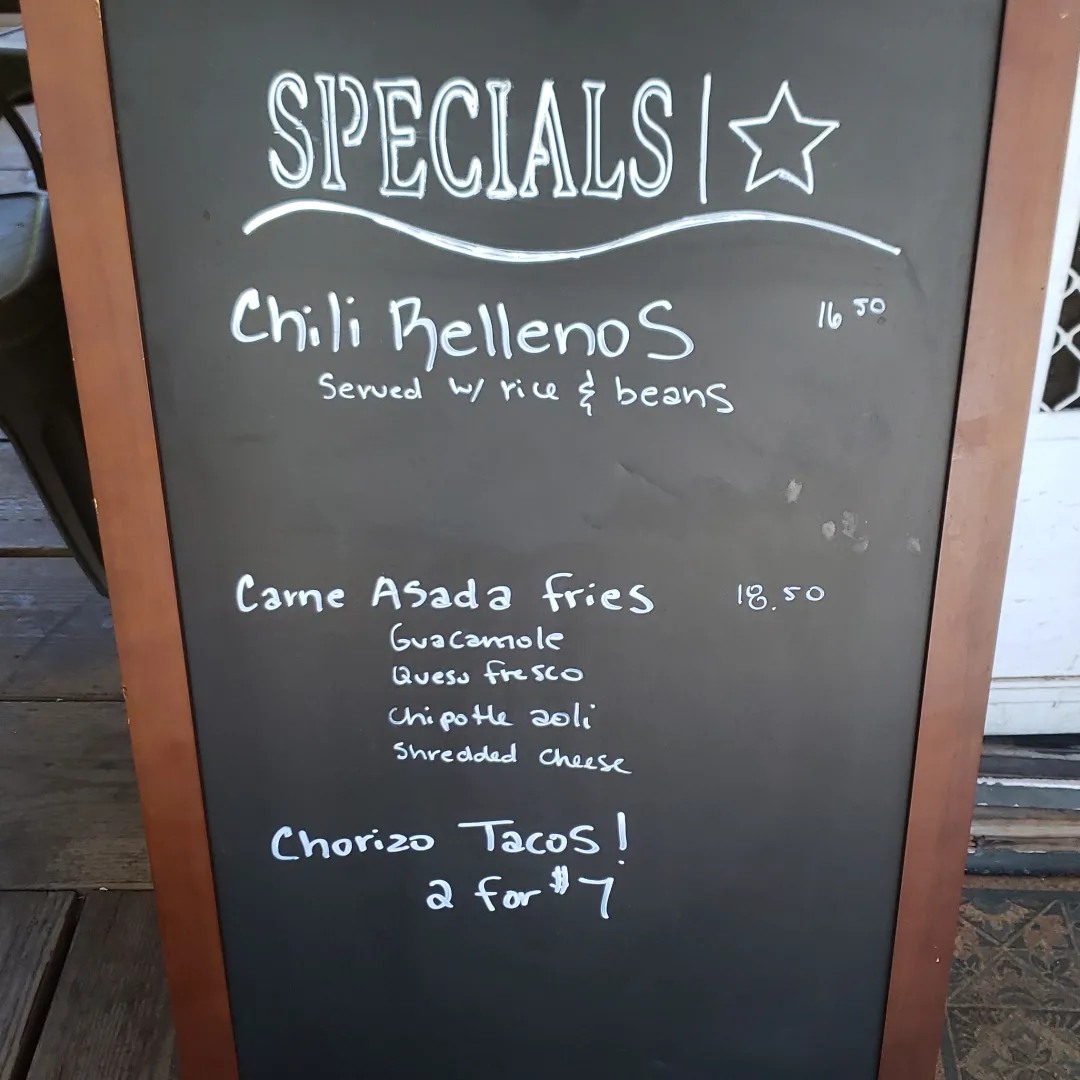 SPECIALS
Chili Rellenos 16 50
Served w/ rice & beans
Carne Asada fries 18.50
Guacamole
Queso fresco
Chipotle aoli
Shredded cheese
Chorizo Tacos!
2 for $7